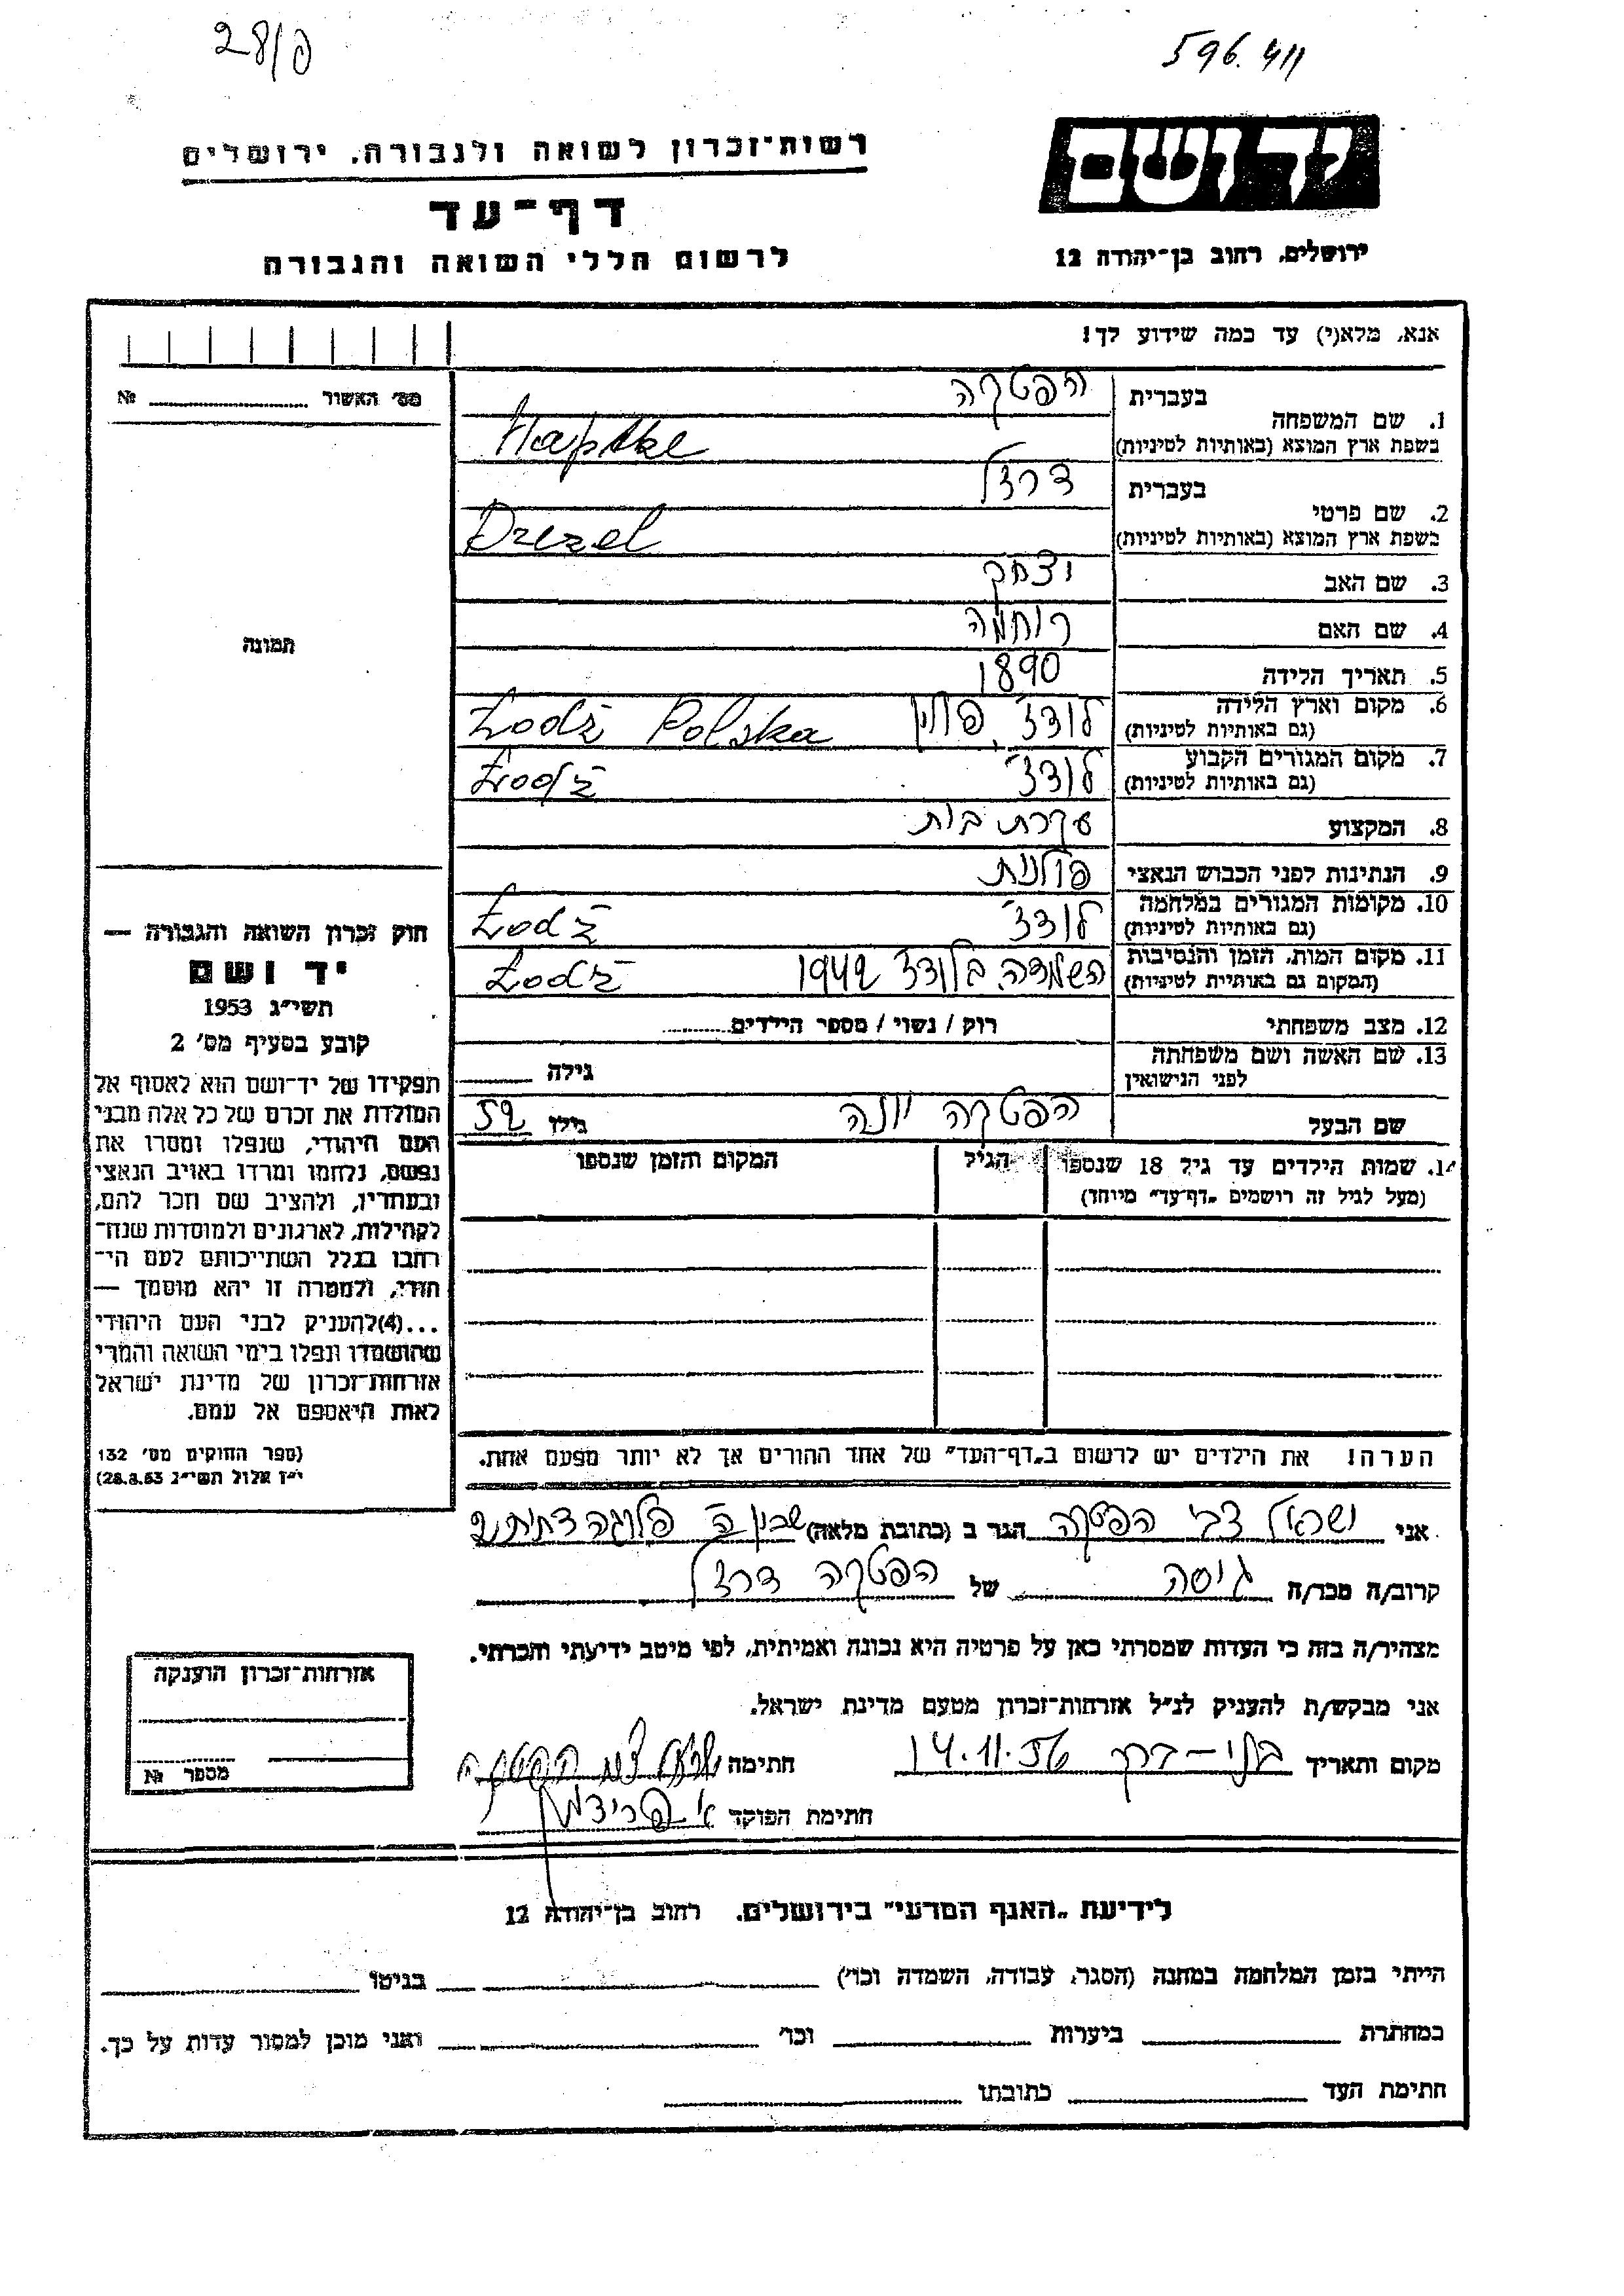 28/פ
596.411
יד ושם
ירושלים, רחוב בן־יהודה 12
רשות־זכרון לשואה ולגבורה, ירושלים
דף־עד
לרשום חללי השואה והגבורה
אנא, מלא(י) עד כמה שידוע לך!
1. שם המשפחה
בעברית הפטקה
בשפת ארץ המוצא (באותיות לטיניות) Haptke
2. שם פרטי
בעברית דרזל
בשפת ארץ המוצא (באותיות לטיניות) Drezel
3. שם האב יצחק
4. שם האם רוחמה
5. תאריך הלידה 1890
6. מקום וארץ הלידה לודז', פולין Łodż Polska
(גם באותיות לטיניות)
7. מקום המגורים הקבוע לודז' Łodż
(גם באותיות לטיניות)
8. המקצוע עקרת בית
9. הנתינות לפני הכבוש הנאצי פולנית
10. מקומות המגורים במלחמה לודז' Łodż
(גם באותיות לטיניות)
11. מקום המות, הזמן והנסיבות השמדה בלודז 1942 Łodż
(המקום גם באותיות לטיניות)
12. מצב משפחתי רוק / נשוי / מספר הילדים
13. שם האשה ושם משפחתה
לפני הנישואין גילה
שם הבעל הפטקה יונה גילו 52
14. שמות הילדים עד גיל 18 שנספו הגיל המקום והזמן שנספו
(מעל לגיל זה רושמים „דף־עד” מיוחד)
הערה! את הילדים יש לרשום ב„דף־העד” של אחד ההורים אך לא יותר מפעם אחת.
מס' האשור №
תמונה
חוק זכרון השואה והגבורה —
יד ושם
תשי״ג 1953
קובע בסעיף מס' 2
תפקידו של יד־ושם הוא לאסוף אל
המולדת את זכרם של כל אלה מבני
העם היהודי, שנפלו ומסרו את
נפשם, נלחמו ומרדו באויב הנאצי
ובעוזריו, ולהציב שם וזכר להם,
לקהילות, לארגונים ולמוסדות שנח־
רבו בגלל השתייכותם לעם הי־
הודי, ולמטרה זו יהא מוסמך —
...(4) להעניק לבני העם היהודי
שהושמדו ונפלו בימי השואה והמרי
אזרחות־זכרון של מדינת ישראל
לאות היאספם אל עמם.
(ספר החוקים מס' 132
י״ז אלול תשי״ג 28.8.53)
אני ישראל צבי הפטקה הגר ב (כתובת מלאה)
קרוב/ה מכר/ה גיסה של הפטקה דרזל
מצהיר/ה בזה כי העדות שמסרתי כאן על פרטיה היא נכונה ואמיתית, לפי מיטב ידיעתי והכרתי.
אני מבקש/ת להעניק לנ״ל אזרחות־זכרון מטעם מדינת ישראל.
מקום ותאריך בני-ברק 14.11.56 חתימה ישראל צבי הפטקה
חתימת הפוקד
אזרחות־זכרון הוענקה
מספר №
לידיעת „האגף המדעי” בירושלים, רחוב בן־יהודה 12
הייתי בזמן המלחמה במחנה (הסגר, עבודה, השמדה וכו') בגיטו
במחתרת ביערות וכו' ואני מוכן למסור עדות על כך.
חתימת העד כתובתו